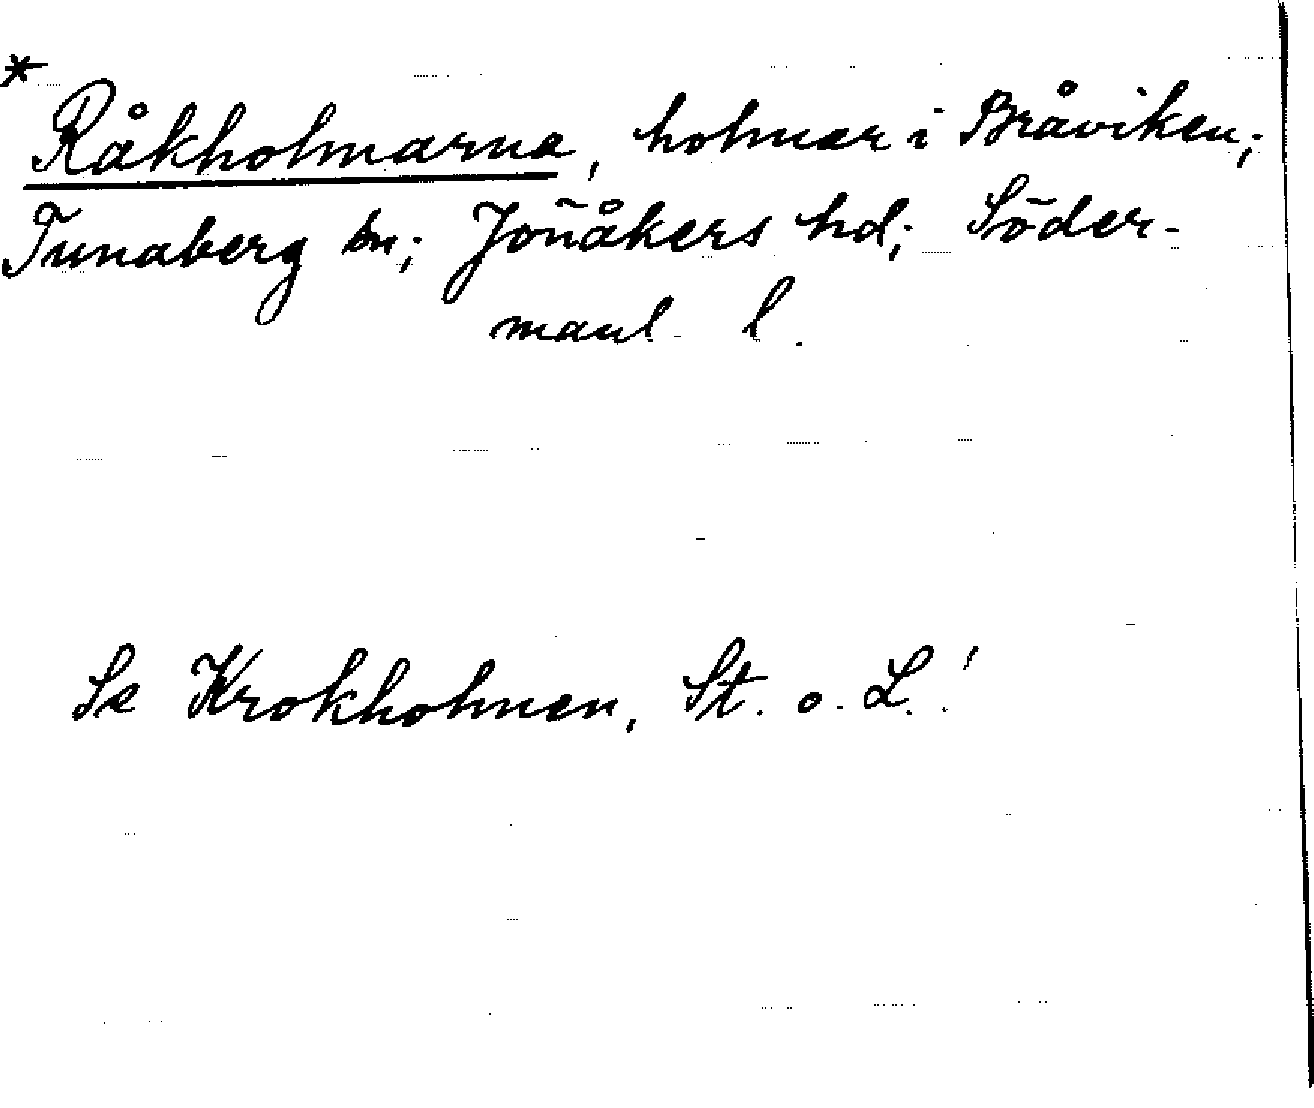 * Råkholmarna, holmar i Bråviken;
Tunaberg sn; Jon̄åkers hd; Söder-
manl. l.
Se Krokholmen, St. o. L.!